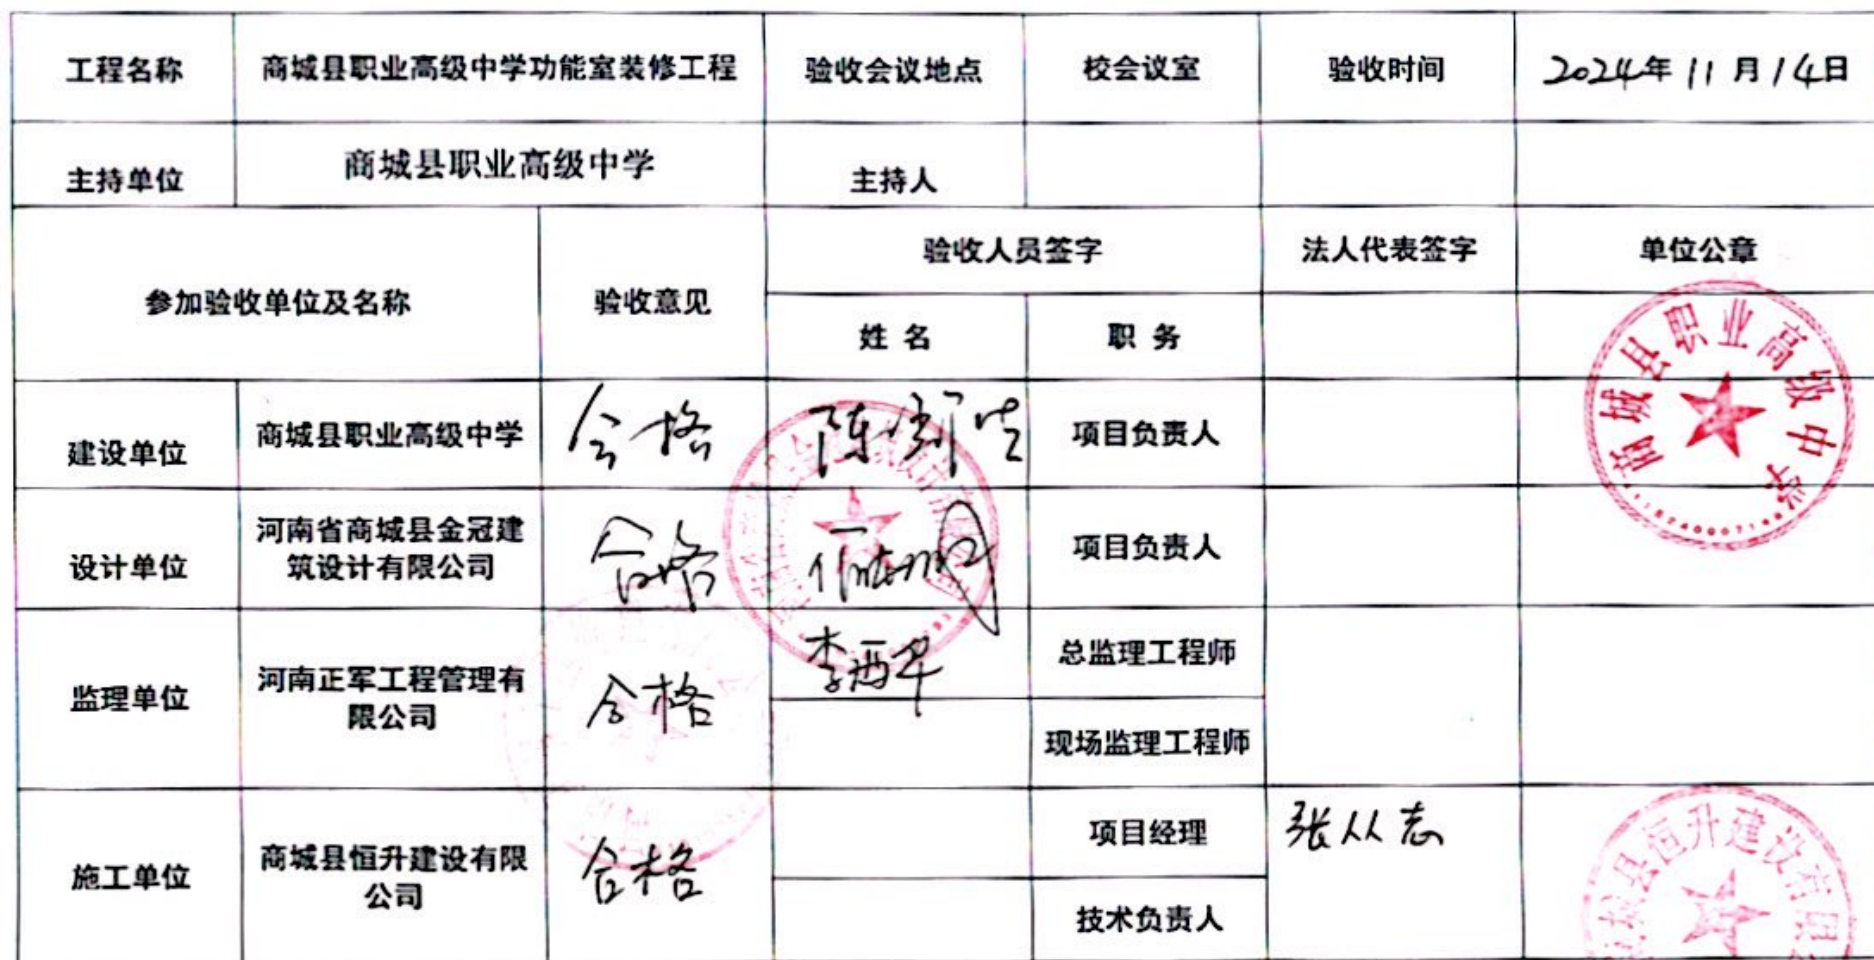 工程名称 商城县职业高级中学功能室装修工程 验收会议地点 校会议室 验收时间 2024年11月14日
主持单位 商城县职业高级中学 主持人
参加验收单位及名称 验收意见 验收人员签字 法人代表签字 单位公章
姓名 职务
商城县职业高级中学
建设单位 商城县职业高级中学 合格 项目负责人
设计单位 河南省商城县金冠建
筑设计有限公司 合格 项目负责人
监理单位 河南正军工程管理有
限公司 合格 总监理工程师
现场监理工程师
施工单位 商城县恒升建设有限
公司 合格 项目经理 张从志
技术负责人
城县恒升建设有限